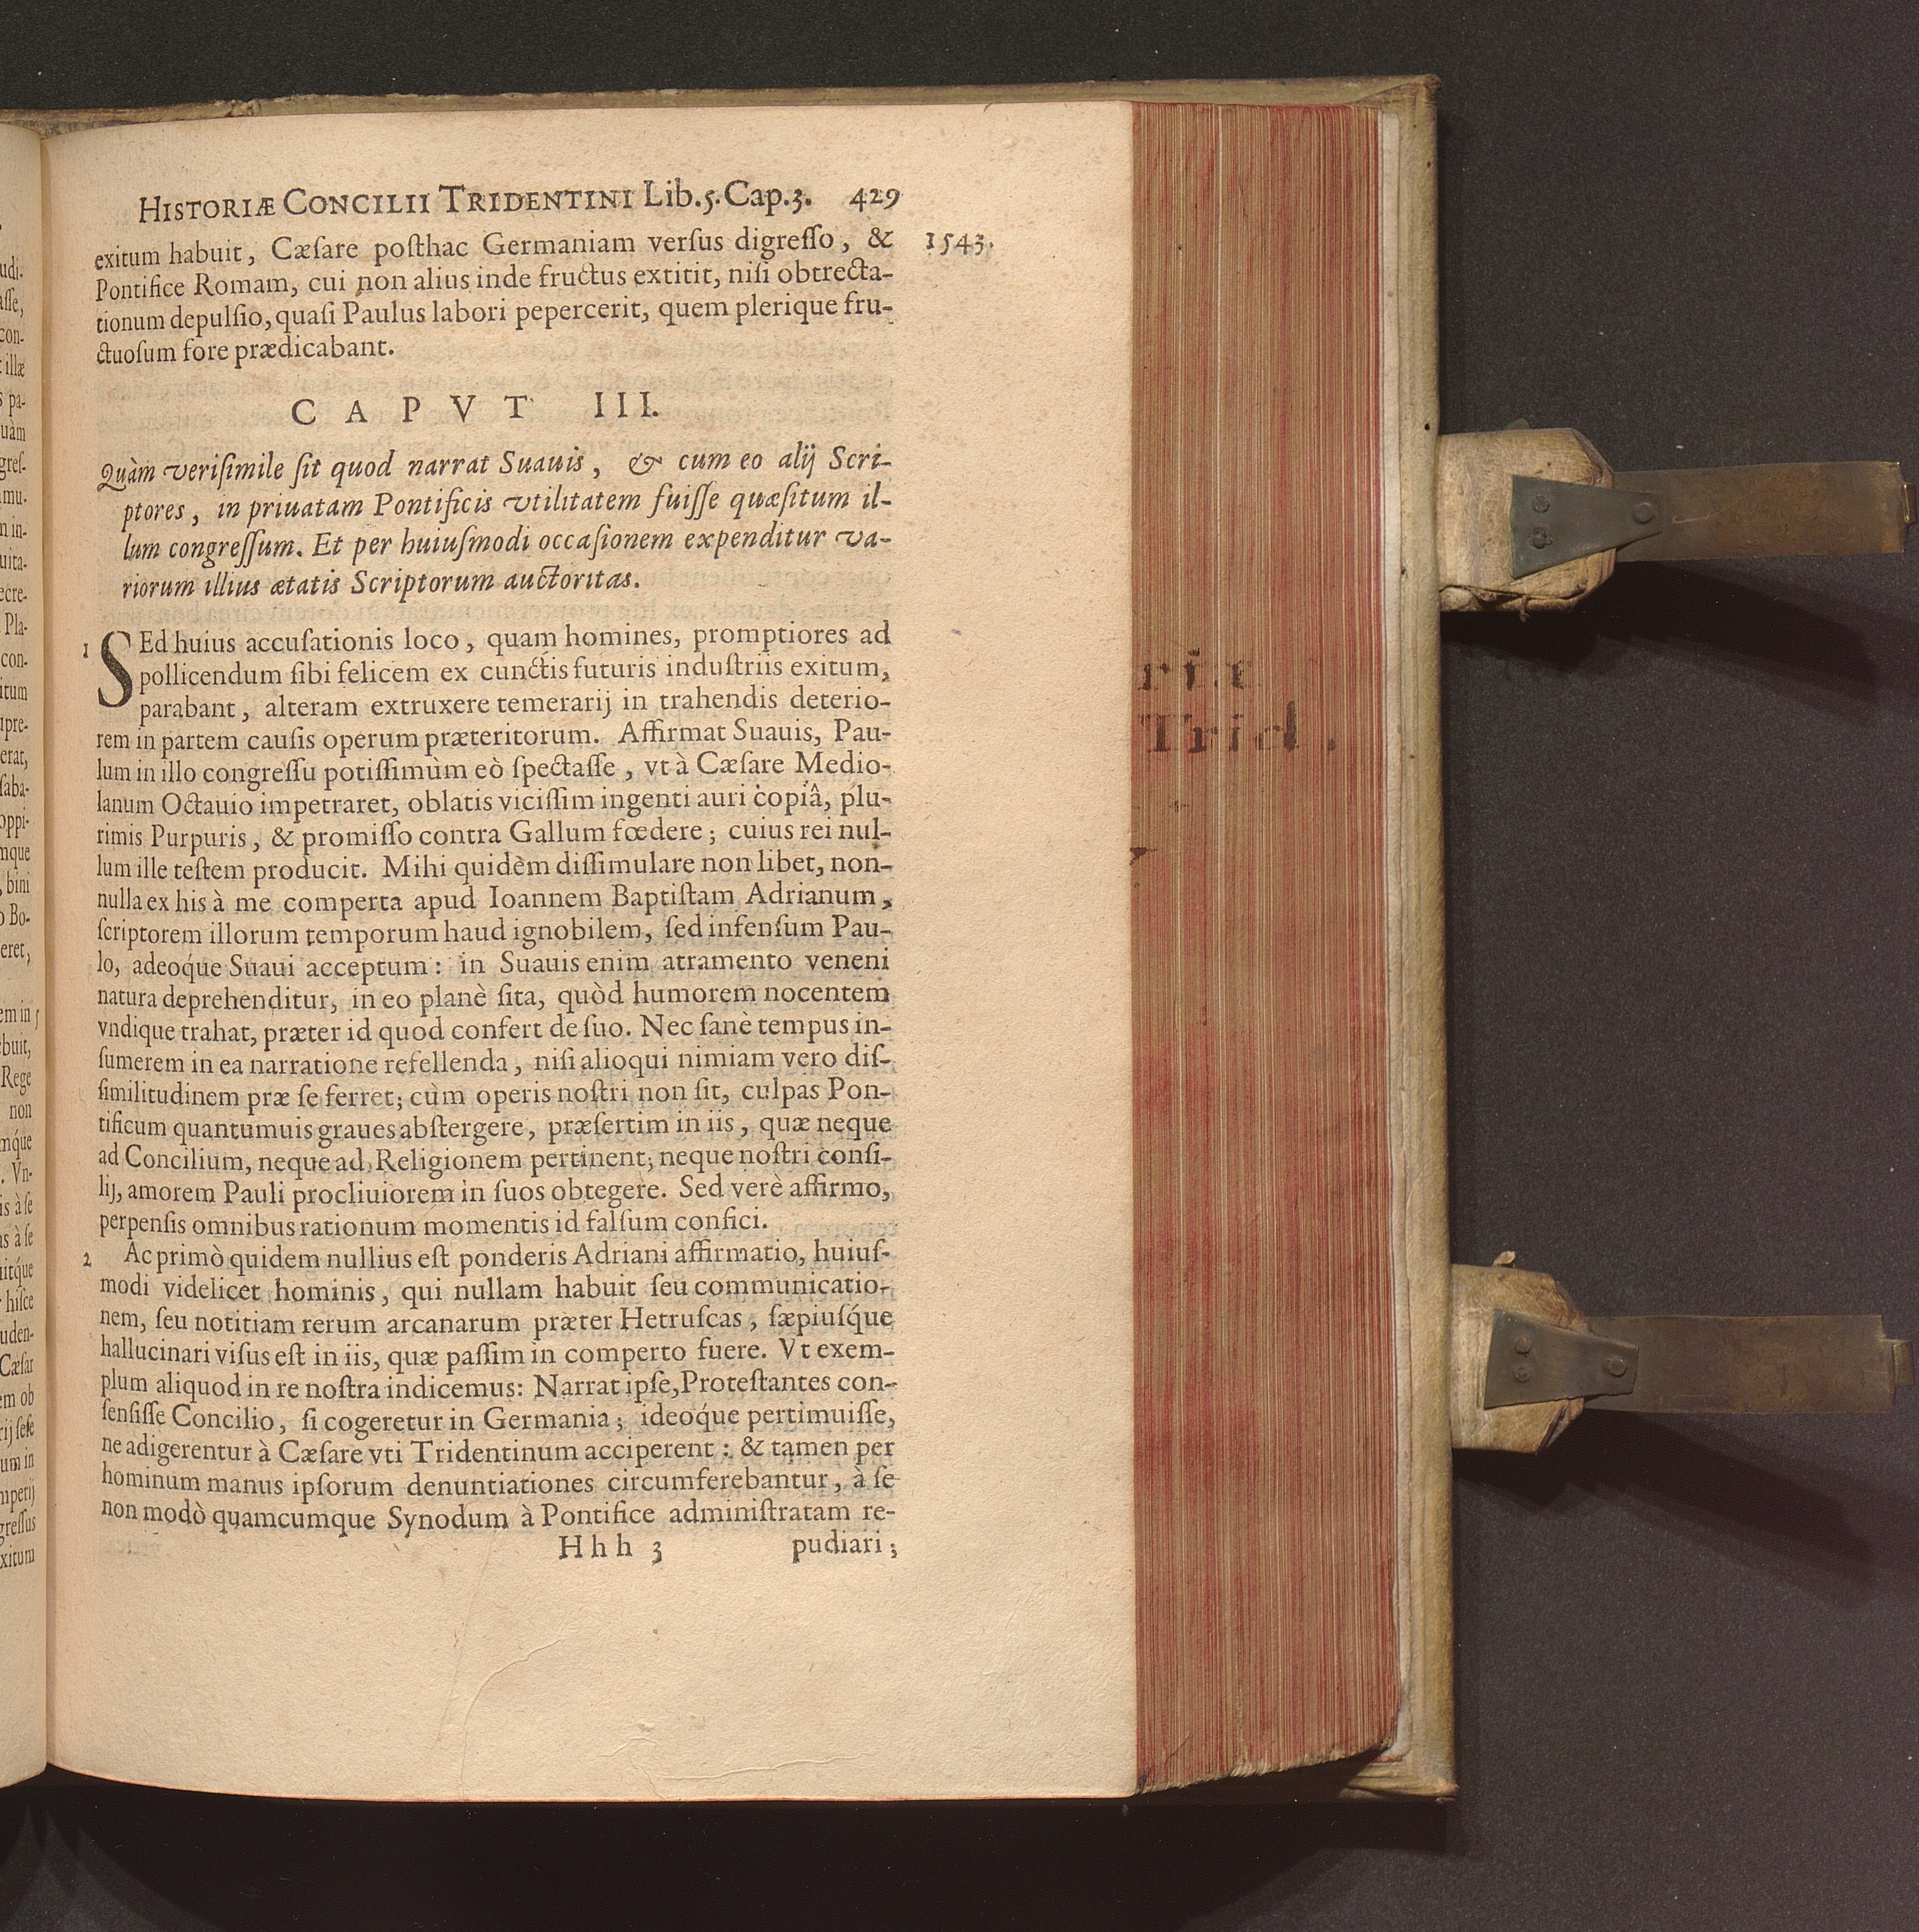 HISTORIÆ CONCILII TRIDENTINI Lib.5. Cap.3. 429
1543.
exitum habuit, Cæſare poſthac Germaniam verſus digreſſo, &
Pontifice Romam, cui non alius inde fructus extitit, niſi obtrecta-
tionum depulſio, quaſi Paulus labori pepercerit, quem plerique fru-
ctuoſum fore prædicabant.
CAPVT III.
Quàm veriſimile ſit quod narrat Suauis, & cum eo alij Scri-
ptores, in priuatam Pontificis vtilitatem fuiſſe quæſitum il-
lum congreſſum. Et per huiuſmodi occaſionem expenditur va-
riorum illius ætatis Scriptorum auctoritas.
1 SEd huius accuſationis loco, quam homines, promptiores ad
pollicendum ſibi felicem ex cunctis futuris induſtriis exitum,
parabant, alteram extruxere temerarij in trahendis deterio-
rem in partem cauſis operum præteritorum. Affirmat Suauis, Pau-
lum in illo congreſſu potiſſimùm eò ſpectaſſe, vt à Cæſare Medio-
lanum Octauio impetraret, oblatis viciſſim ingenti auri copiâ, plu-
rimis Purpuris, & promiſſo contra Gallum fœdere; cuius rei nul-
lum ille teſtem producit. Mihi quidèm diſſimulare non libet, non-
nulla ex his à me comperta apud Ioannem Baptiſtam Adrianum,
ſcriptorem illorum temporum haud ignobilem, ſed infenſum Pau-
lo, adeoq́ue Suaui acceptum: in Suauis enim atramento veneni
natura deprehenditur, in eo planè ſita, quòd humorem nocentem
vndique trahat, præter id quod confert de ſuo. Nec ſanè tempus in-
ſumerem in ea narratione refellenda, niſi alioqui nimiam vero diſ-
ſimilitudinem præ ſe ferret; cùm operis noſtri non ſit, culpas Pon-
tificum quantumuis graues abſtergere, præſertim in iis, quæ neque
ad Concilium, neque ad Religionem pertinent; neque noſtri conſi-
lij, amorem Pauli procliuiorem in ſuos obtegere. Sed verè affirmo,
perpenſis omnibus rationum momentis id falſum confici.
2 Ac primò quidem nullius eſt ponderis Adriani affirmatio, huiuſ-
modi videlicet hominis, qui nullam habuit ſeu communicatio-
nem, ſeu notitiam rerum arcanarum præter Hetruſcas, ſæpiuſq́ue
hallucinari viſus eſt in iis, quæ paſſim in comperto fuere. Vt exem-
plum aliquod in re noſtra indicemus: Narrat ipſe, Proteſtantes con-
ſenſiſſe Concilio, ſi cogeretur in Germania; ideoq́ue pertimuiſſe,
ne adigerentur à Cæſare vti Tridentinum acciperent: & tamen per
hominum manus ipſorum denuntiationes circumferebantur, à ſe
non modò quamcumque Synodum à Pontifice adminiſtratam re-
Hhh 3 pudiari;
Trid.